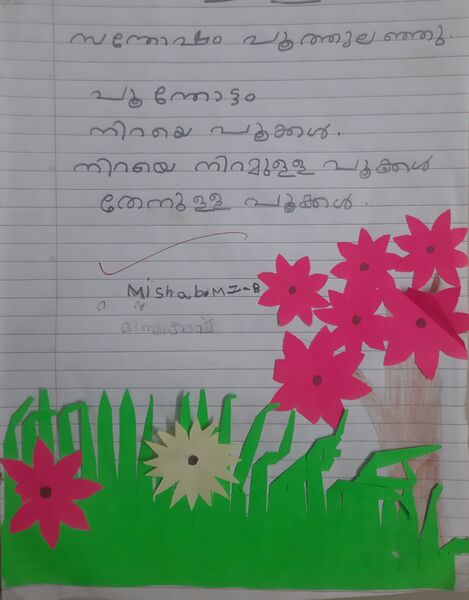 സന്തോഷം പൂത്തുലഞ്ഞു.
പൂന്തോട്ടം
നിറയെ പൂക്കൾ.
നിറയെ നിറമുള്ള പൂക്കൾ
തേനുള്ള പൂക്കൾ.
Mishab.M I-B